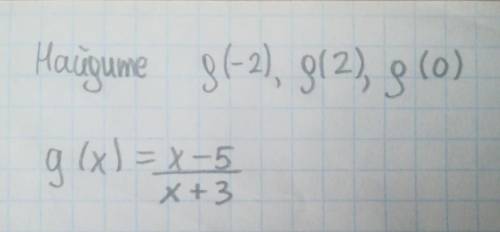 Найдите g(-2), g(2), g(0)
g(x) = x-5
x+3